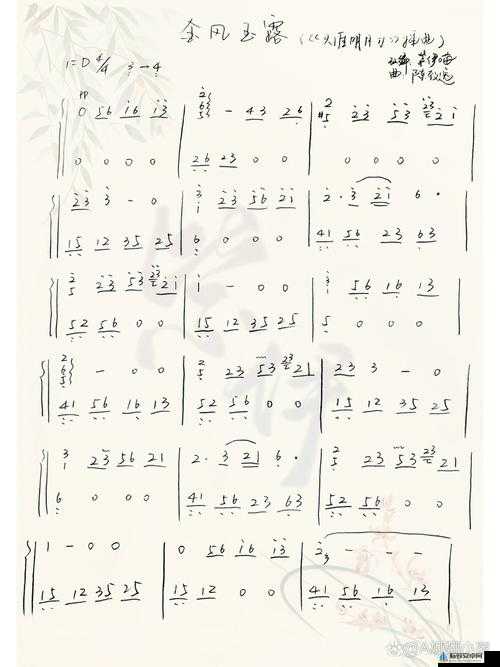 金风玉露（《天涯明月刀》插曲）
1=D 4/4
曲：陈致逸
0 56 i6 i3 | 265 - 43 26 | 2#5 23 53 232i
0 0 0 0 | 26 23 0 0 | 0 0 0 0
23 3 - 0 | 31 23 56 21 | 2· 3 21 6·
15 12 35 25 | 6 0 0 0 | 41 56 23 63
25 23 53 2321 | 1 - 0 0 | 31 56 16 13
52 56 0 0 | 15 12 35 25 | 5 0 0 0
265 - 0 0 | 25 23 53 2321 | 23 3 - 0
41 56 16 13 | 52 56 0 0 | 15 12 35 25
31 23 56 21 | 2· 3 21 6· | 25 23 53 2321
6 0 0 0 | 41 56 23 63 | 52 56 0 0
1 - 0 0 | 0 56 i6 i3 | 23 - - -
15 12 35 25 | 15 12 0 0 | 41 56 16 13